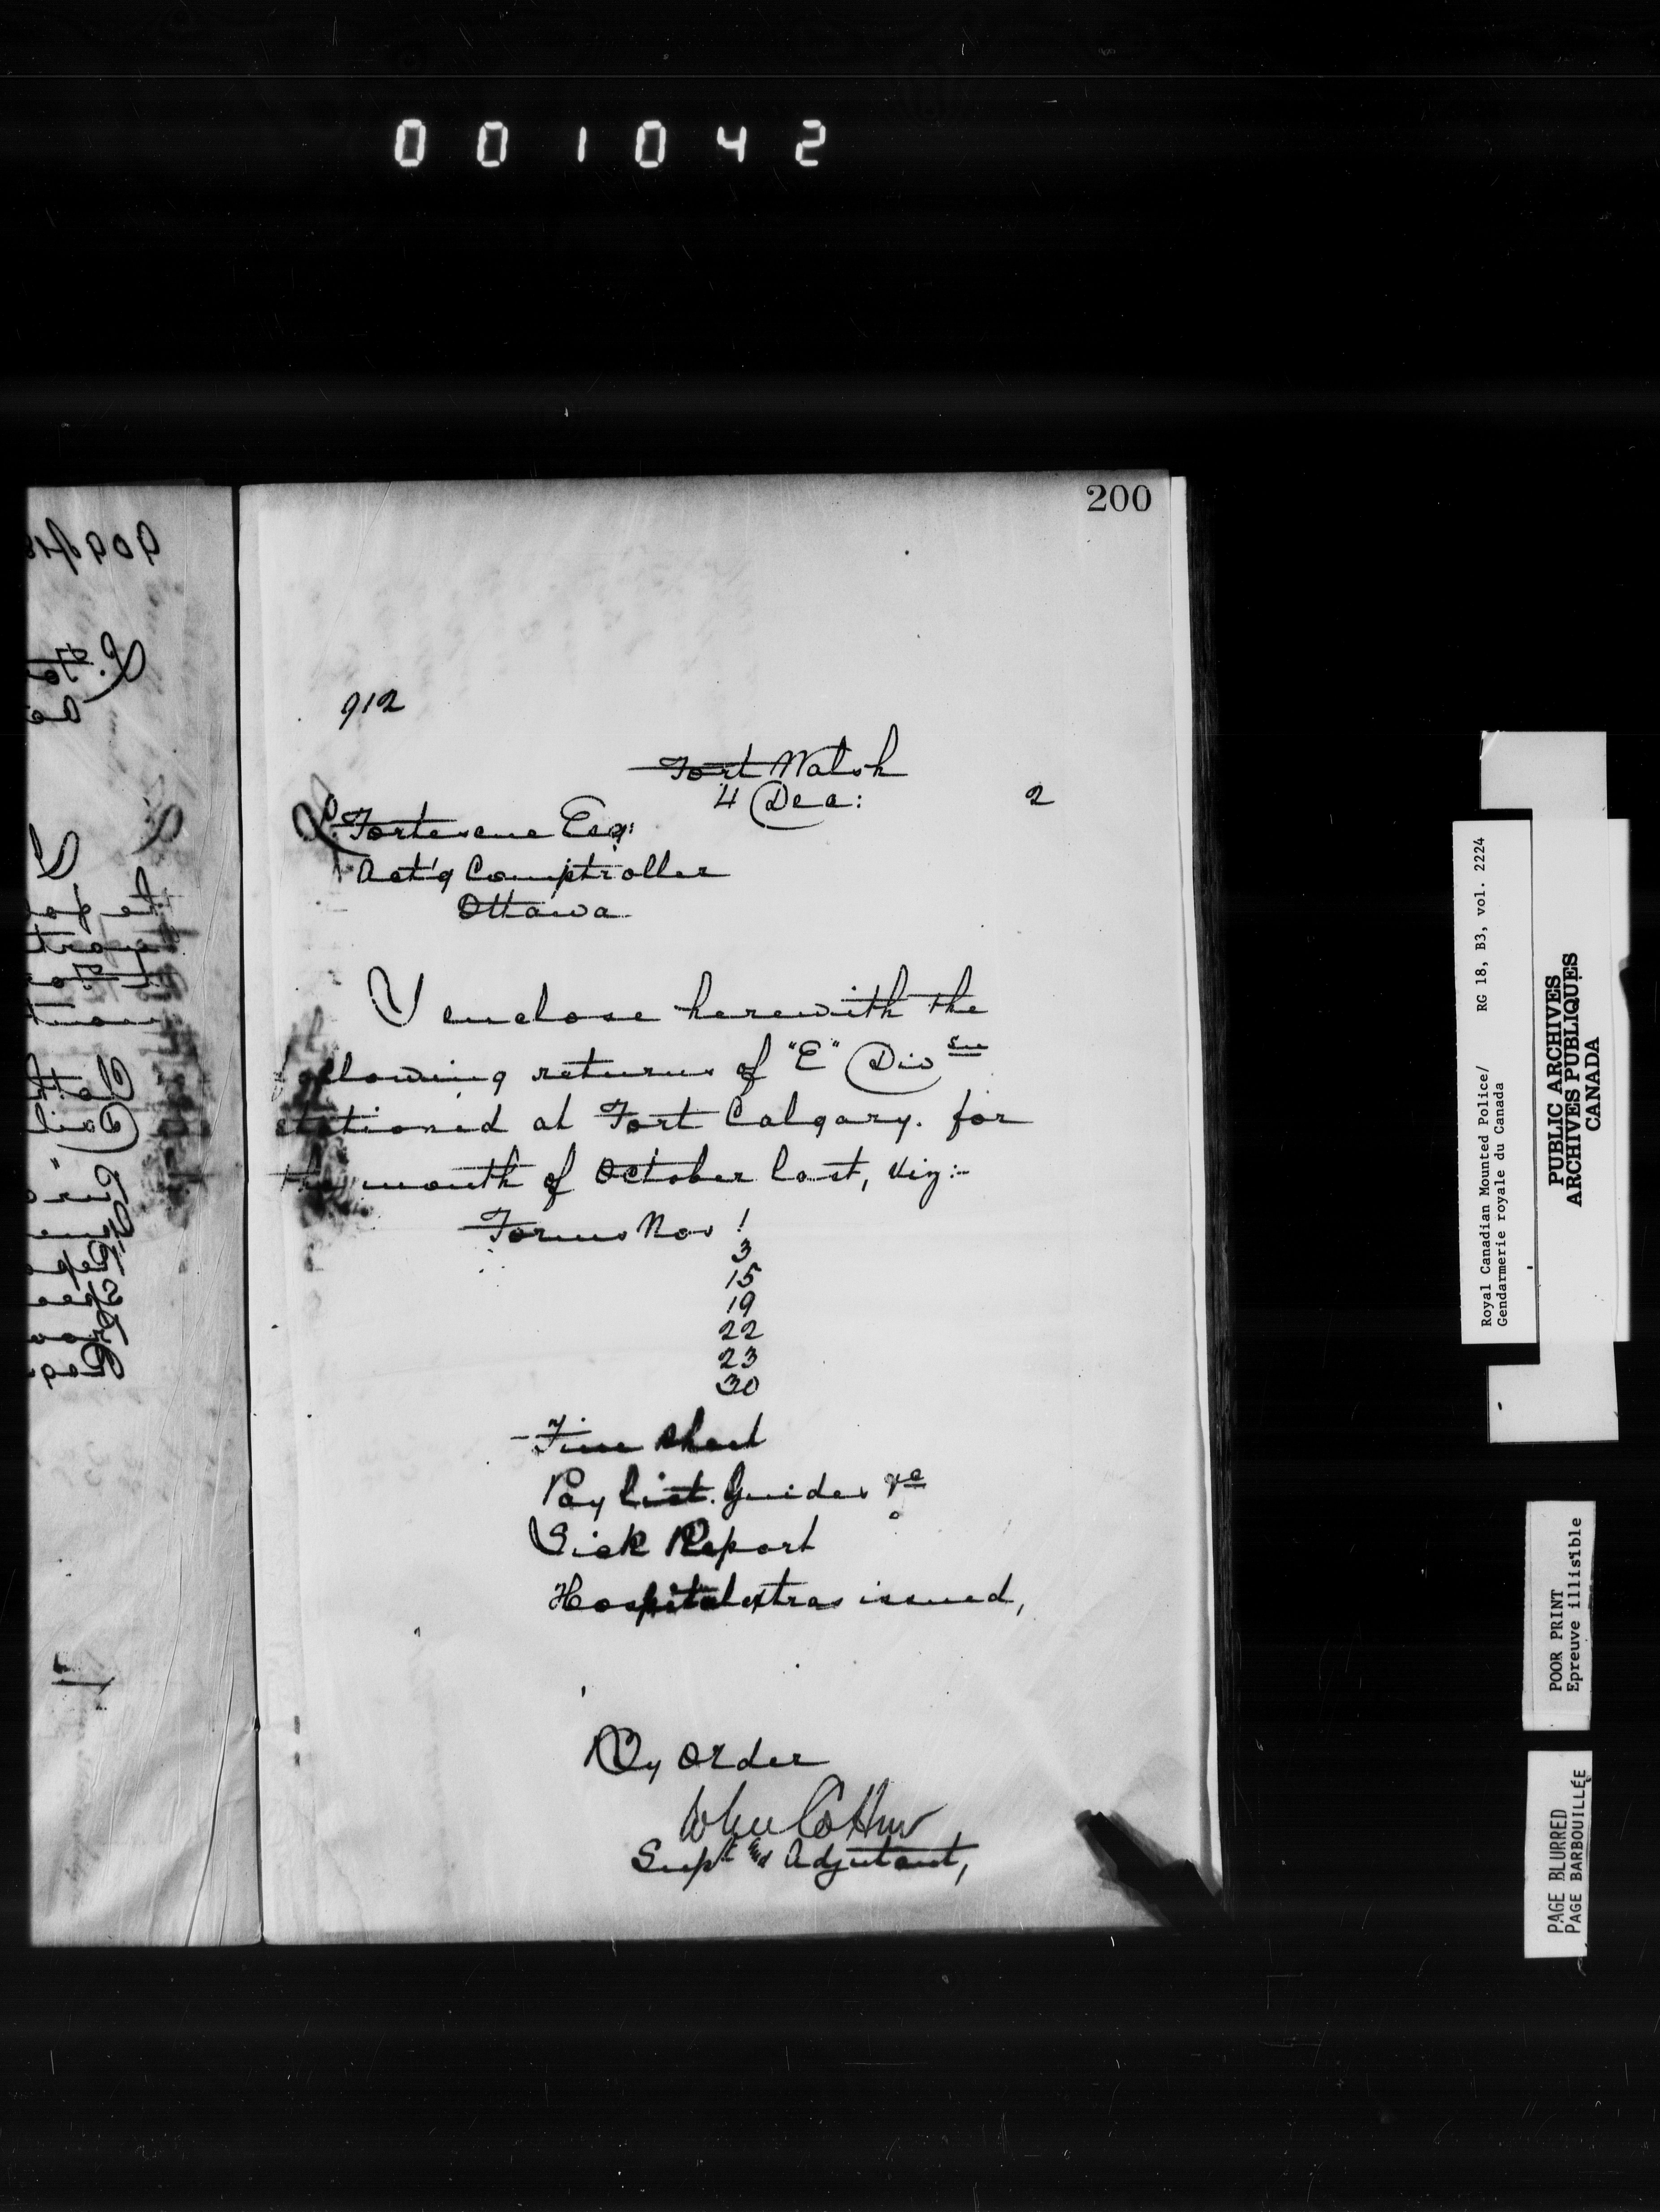 001042
200
912
Fort Walsh
4 Dec: 2
L. Fortescue Esq:
Act'g Comptroller
Ottawa
I enclose herewith the
following returns of "E" Divsn
stationed at Fort Calgary. for
the month of October last, viz:-
Forms Nos 1
3
15
19
22
23
30
Time Sheet
Pay list. Guides &c
Sick Report
Hospital extras issued,
By Order
John Cotton
Supt and Adjutant,
Royal Canadian Mounted Police/ RG 18, B3, vol. 2224
Gendarmerie royale du Canada
PUBLIC ARCHIVES
ARCHIVES PUBLIQUES
CANADA
POOR PRINT
Epreuve illisible
PAGE BLURRED
PAGE BARBOUILLÉE